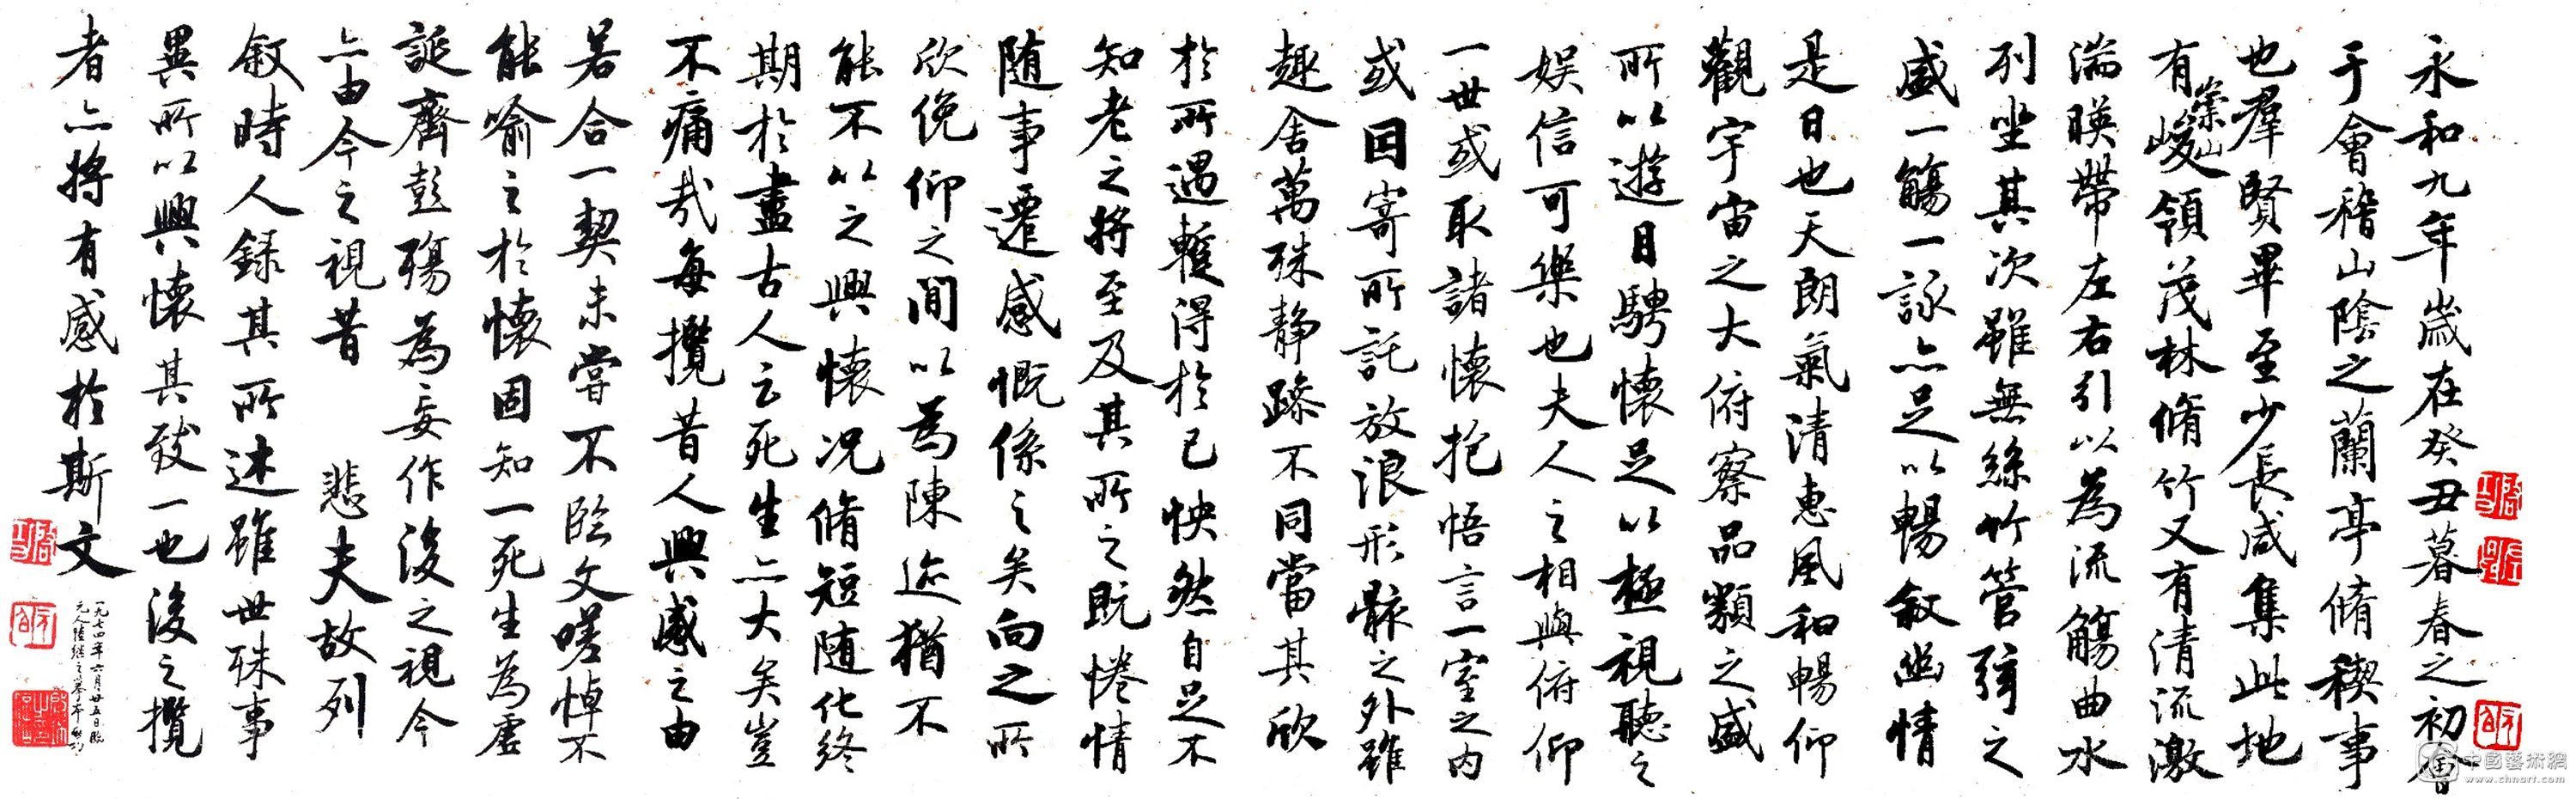 永和九年歲在癸丑暮春之初會
于會稽山陰之蘭亭脩稧事
也羣賢畢至少長咸集此地
有崇山峻領茂林脩竹又有清流激
湍暎帶左右引以為流觴曲水
列坐其次雖無絲竹管弦之
盛一觴一詠亦足以暢敘幽情
是日也天朗氣清惠風和暢仰
觀宇宙之大俯察品類之盛
所以遊目騁懷足以極視聽之
娛信可樂也夫人之相與俯仰
一世或取諸懷抱悟言一室之內
或因寄所託放浪形骸之外雖
趣舍萬殊静躁不同當其欣
於所遇暫得於己怏然自足不
知老之將至及其所之既惓情
随事遷感慨係之矣向之所
欣俛仰之間以為陳迹猶不
能不以之興懷況脩短随化終
期於盡古人云死生亦大矣豈
不痛哉每攬昔人興感之由
若合一契未嘗不臨文嗟悼不
能喻之於懷固知一死生為虛
誕齊彭殤為妄作後之視今
亦由今之視昔 悲夫故列
敘時人錄其所述雖世殊事
異所以興懷其致一也後之攬
者亦將有感於斯文
一九七四年六月廿五日臨
中國藝術網
www.chnart.com